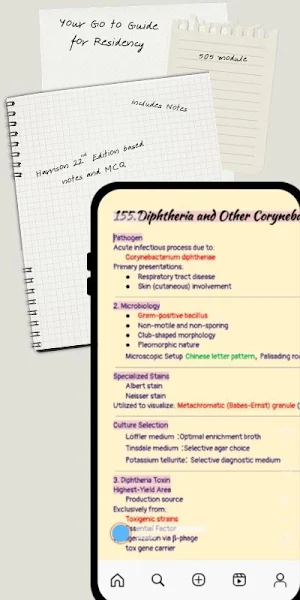 Your Go to Guide
for Residency
505 module
Includes Notes
Harrison 22nd Edition based
notes and MCQ
155. Diphtheria and Other Coryneba
Pathogen
Acute infectious process due to:
Corynebacterium diphtheriae
Primary presentations:
• Respiratory tract disease
• Skin (cutaneous) involvement
2. Microbiology
• Gram-positive bacillus
• Non-motile and non-sporing
• Club-shaped morphology
• Pleomorphic nature
Microscopic Setup Chinese letter pattern, Palisading ro
Specialized Stains
Albert stain
Neisser stain
Utilized to visualize: Metachromatic (Babes-Ernst) granule (
Culture Selection
Loffler medium :Optimal enrichment broth
Tinsdale medium :Selective agar choice
Potassium tellurite: Selective diagnostic medium
3. Diphtheria Toxin
Highest-Yield Area
Production source
Exclusively from:
Toxigenic strains
Essential Factor
via β-phage
tox gene carrier